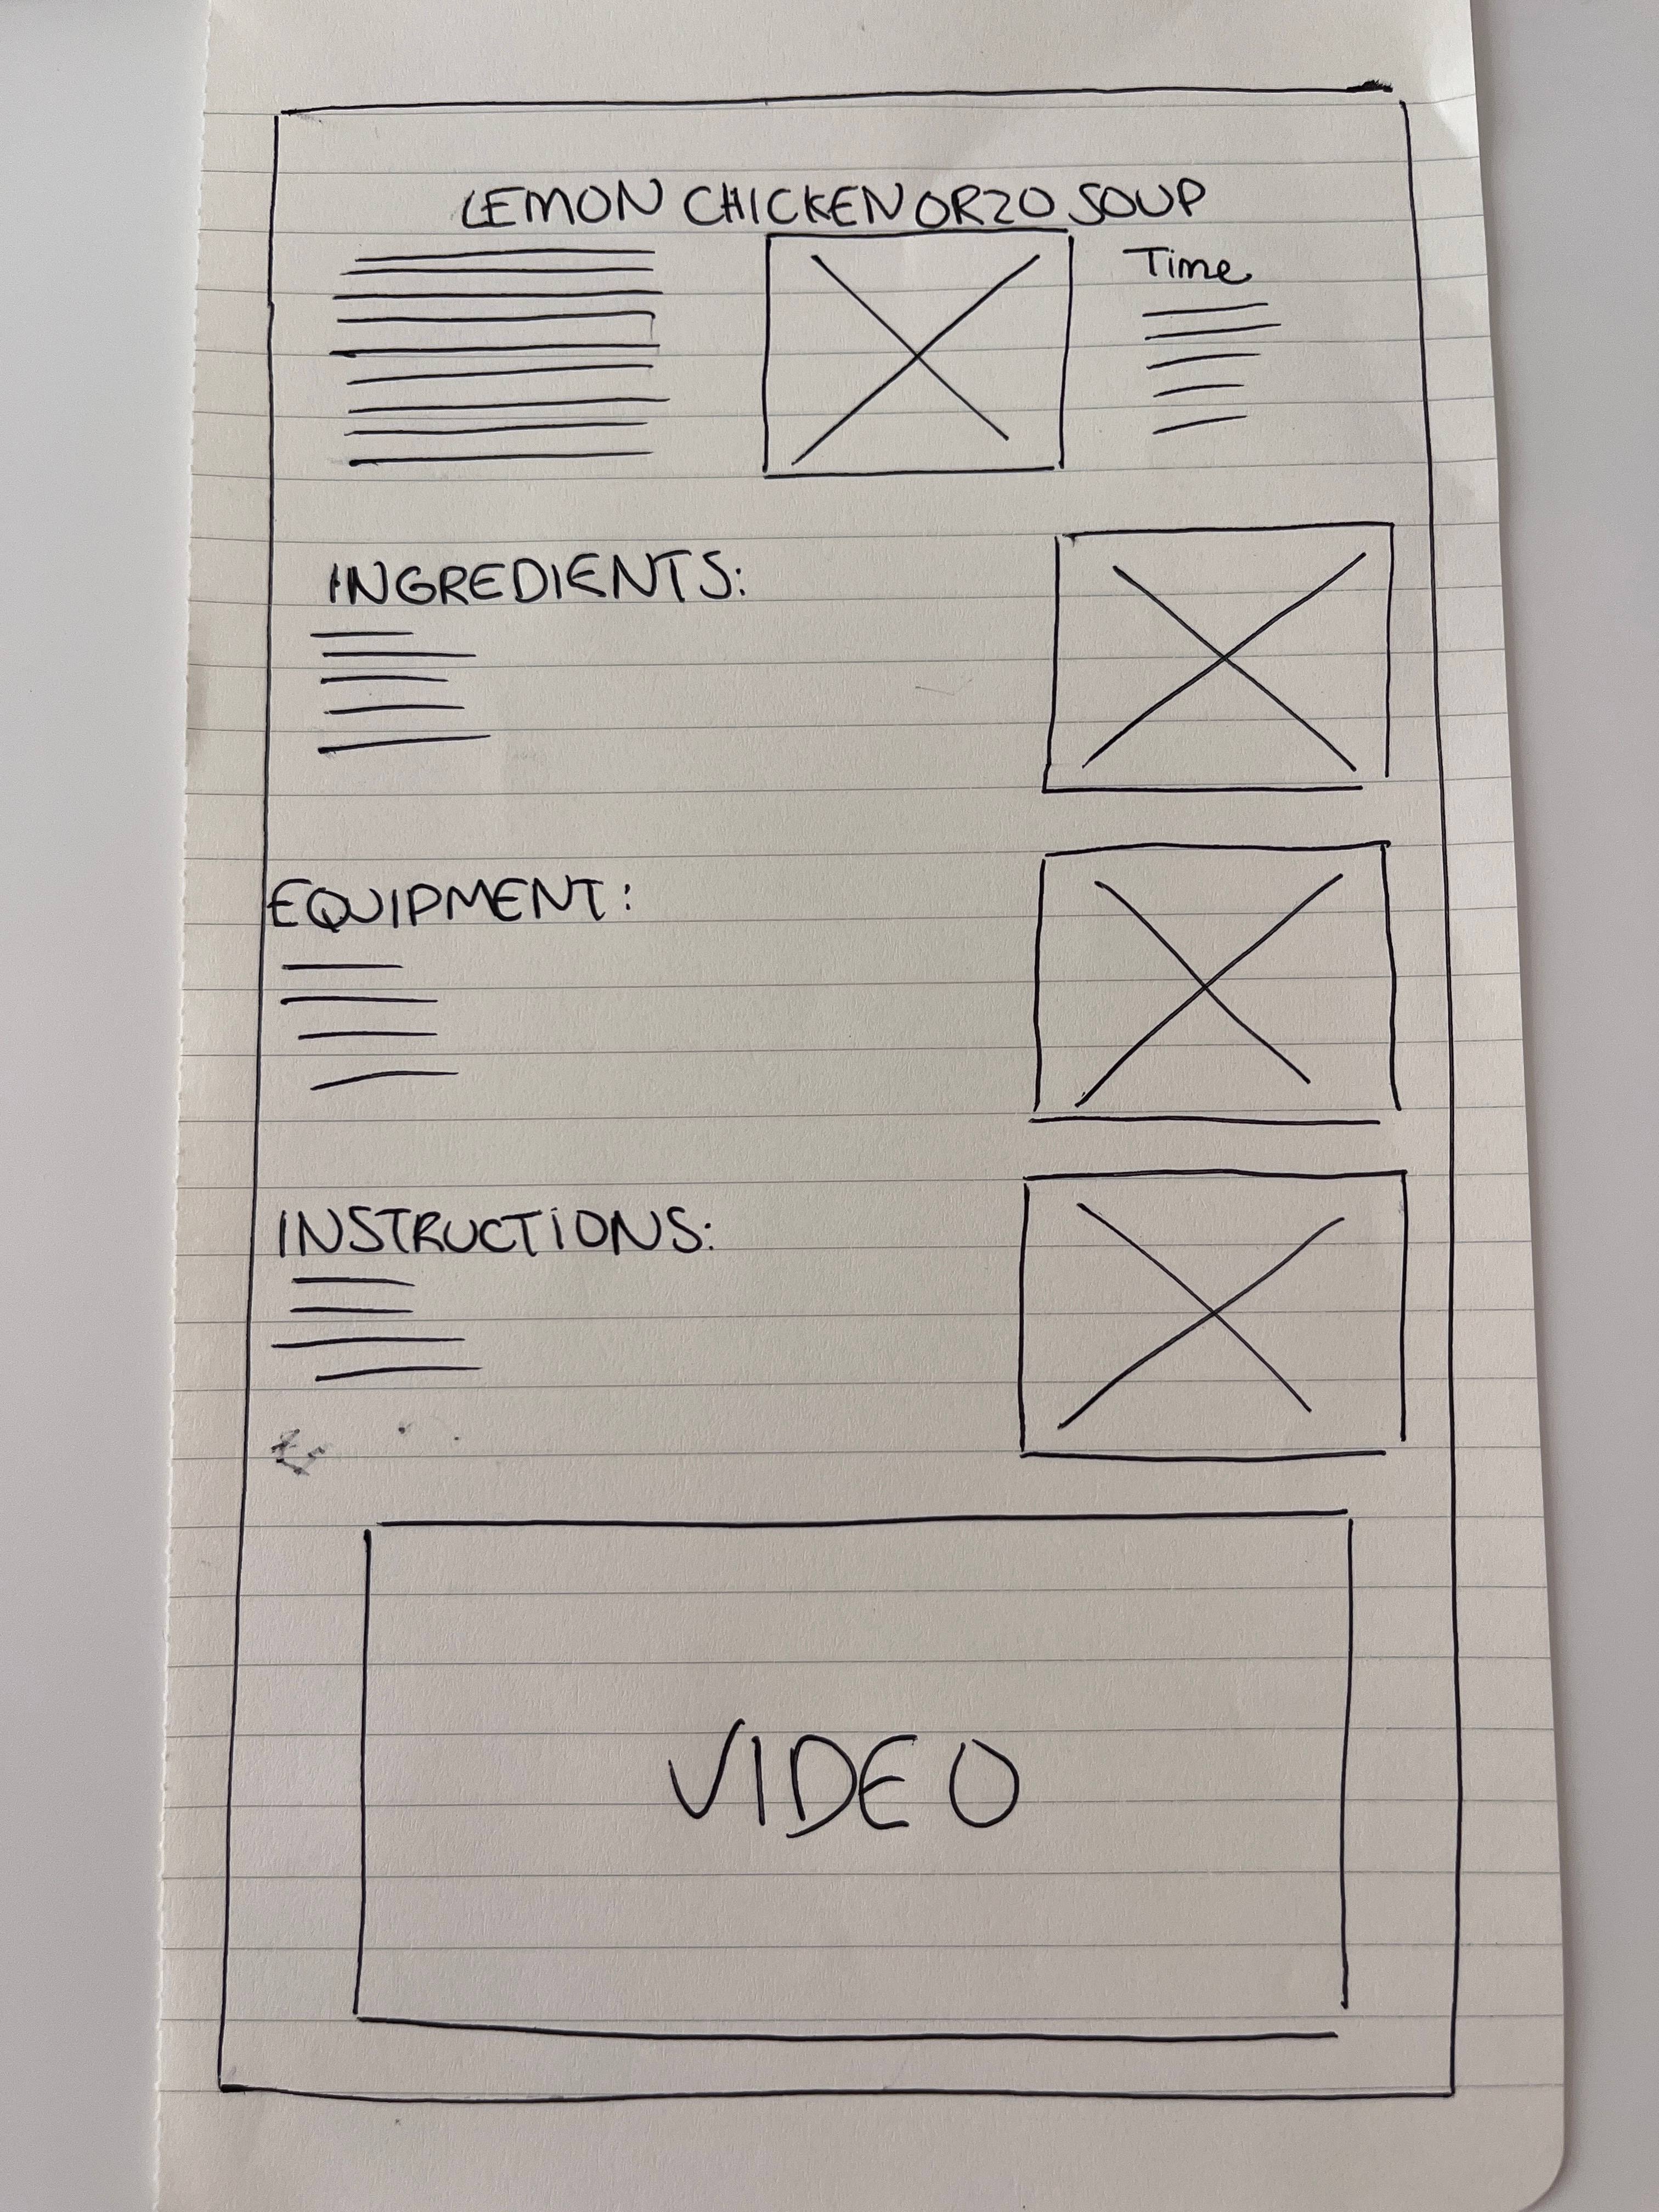 LEMON CHICKEN ORZO SOUP
Time
INGREDIENTS:
EQUIPMENT:
INSTRUCTIONS:
VIDEO